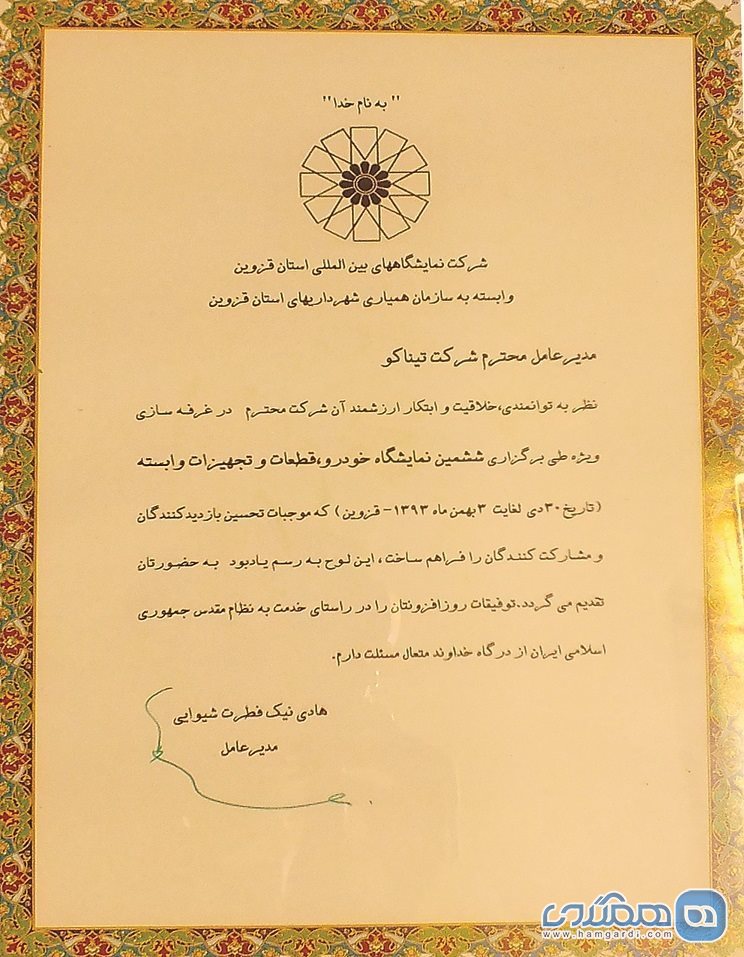 "به نام خدا"
شرکت نمایشگاههای بین المللی استان قزوین
وابسته به سازمان همیاری شهرداریهای استان قزوین
مدیرعامل محترم شرکت تیناکو
نظر به توانمندی،خلاقیت و ابتکار ارزشمند آن شرکت محترم در غرفه سازی
ویژه طی برگزاری ششمین نمایشگاه خودرو،قطعات و تجهیزات وابسته
(تاریخ ۳۰دی لغایت ۳بهمن ماه ۱۳۹۳- قزوین) که موجبات تحسین بازدیدکنندگان
و مشارکت کنندگان را فراهم ساخت، این لوح به رسم یادبود به حضورتان
تقدیم می گردد.توفیقات روزافزونتان را در راستای خدمت به نظام مقدس جمهوری
اسلامی ایران از درگاه خداوند متعال مسئلت دارم.
هادی نیک فطرت شیوایی
مدیرعامل
همگردی
www.hamgardi.com